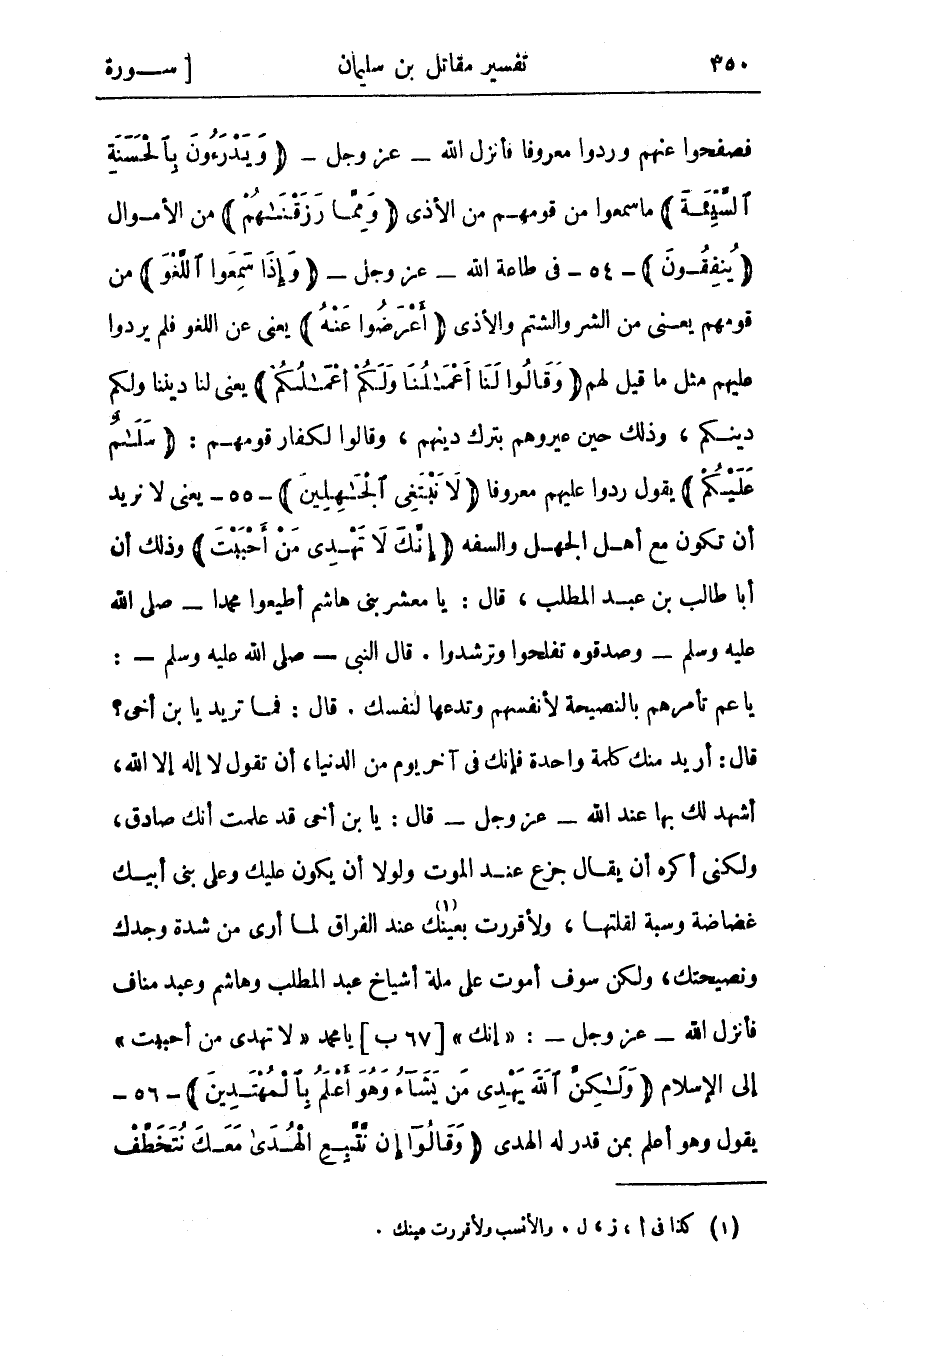 ٣٥٠ تفسير مقاتل بن سليمان [ ســورة
فصفحوا عنهم وردوا معروفا فأنزل الله — عز وجل — ﴿ وَيَدْرَءُونَ بِٱلْحَسَنَةِ
ٱلسَّيِّئَةَ ﴾ ماسمعوا من قومهم من الأذى ﴿ وَمِمَّا رَزَقْنَـٰهُمْ ﴾ من الأموال
﴿ يُنفِقُونَ ﴾ - ٥٤ - فى طاعة الله — عز وجل — ﴿ وَإِذَا سَمِعُوا ٱللَّغْوَ ﴾ من
قومهم يعنى من الشر والشتم والأذى ﴿ أَعْرَضُوا عَنْهُ ﴾ يعنى عن اللغو فلم يردوا
عليهم مثل ما قيل لهم ﴿ وَقَالُوا لَنَا أَعْمَـٰلُنَا وَلَكُمْ أَعْمَـٰلُكُمْ ﴾ يعنى لنا ديننا ولكم
دينكم ، وذلك حين عيروهم بترك دينهم ، وقالوا لكفار قومهم : ﴿ سَلَـٰمٌ
عَلَيْكُمْ ﴾ يقول ردوا عليهم معروفا ﴿ لَا نَبْتَغِى ٱلْجَـٰهِلِينَ ﴾ - ٥٥ - يعنى لا نريد
أن تكون مع أهل الجهل والسفه ﴿ إِنَّكَ لَا تَهْدِى مَنْ أَحْبَبْتَ ﴾ وذلك أن
أبا طالب بن عبد المطلب ، قال : يا معشر بنى هاشم أطيعوا محمدا — صلى الله
عليه وسلم — وصدقوه تفلحوا وترشدوا . قال النبى — صلى الله عليه وسلم — :
يا عم تأمرهم بالنصيحة لأنفسهم وتدعها لنفسك . قال : فما تريد يا بن أخى؟
قال: أريد منك كلمة واحدة فإنك فى آخر يوم من الدنيا، أن تقول لا إله إلا الله،
أشهد لك بها عند الله — عز وجل — قال : يا بن أخى قد علمت أنك صادق،
ولكنى أكره أن يقال جزع عند الموت ولولا أن يكون عليك وعلى بنى أبيك
غضاضة وسبة لقلتها ، ولأقررت بعينك (١) عند الفراق لما أرى من شدة وجدك
ونصيحتك، ولكن سوف أموت على ملة أشياخ عبد المطلب وهاشم وعبد مناف
فأنزل الله — عز وجل — : « إنك » [ ٦٧ ب ] يا محمد « لا تهدى من أحببت »
إلى الإسلام ﴿ وَلَـٰكِنَّ ٱللَّهَ يَهْدِى مَن يَشَآءُ وَهُوَ أَعْلَمُ بِٱلْمُهْتَدِينَ ﴾ - ٥٦ -
يقول وهو أعلم بمن قدر له الهدى ﴿ وَقَالُوٓا إِن نَّتَّبِعِ الْهُدَىٰ مَعَكَ نُتَخَطَّفْ
(١) كذا فى أ ، ز ، ل . والأنسب ولأقررت عينك .